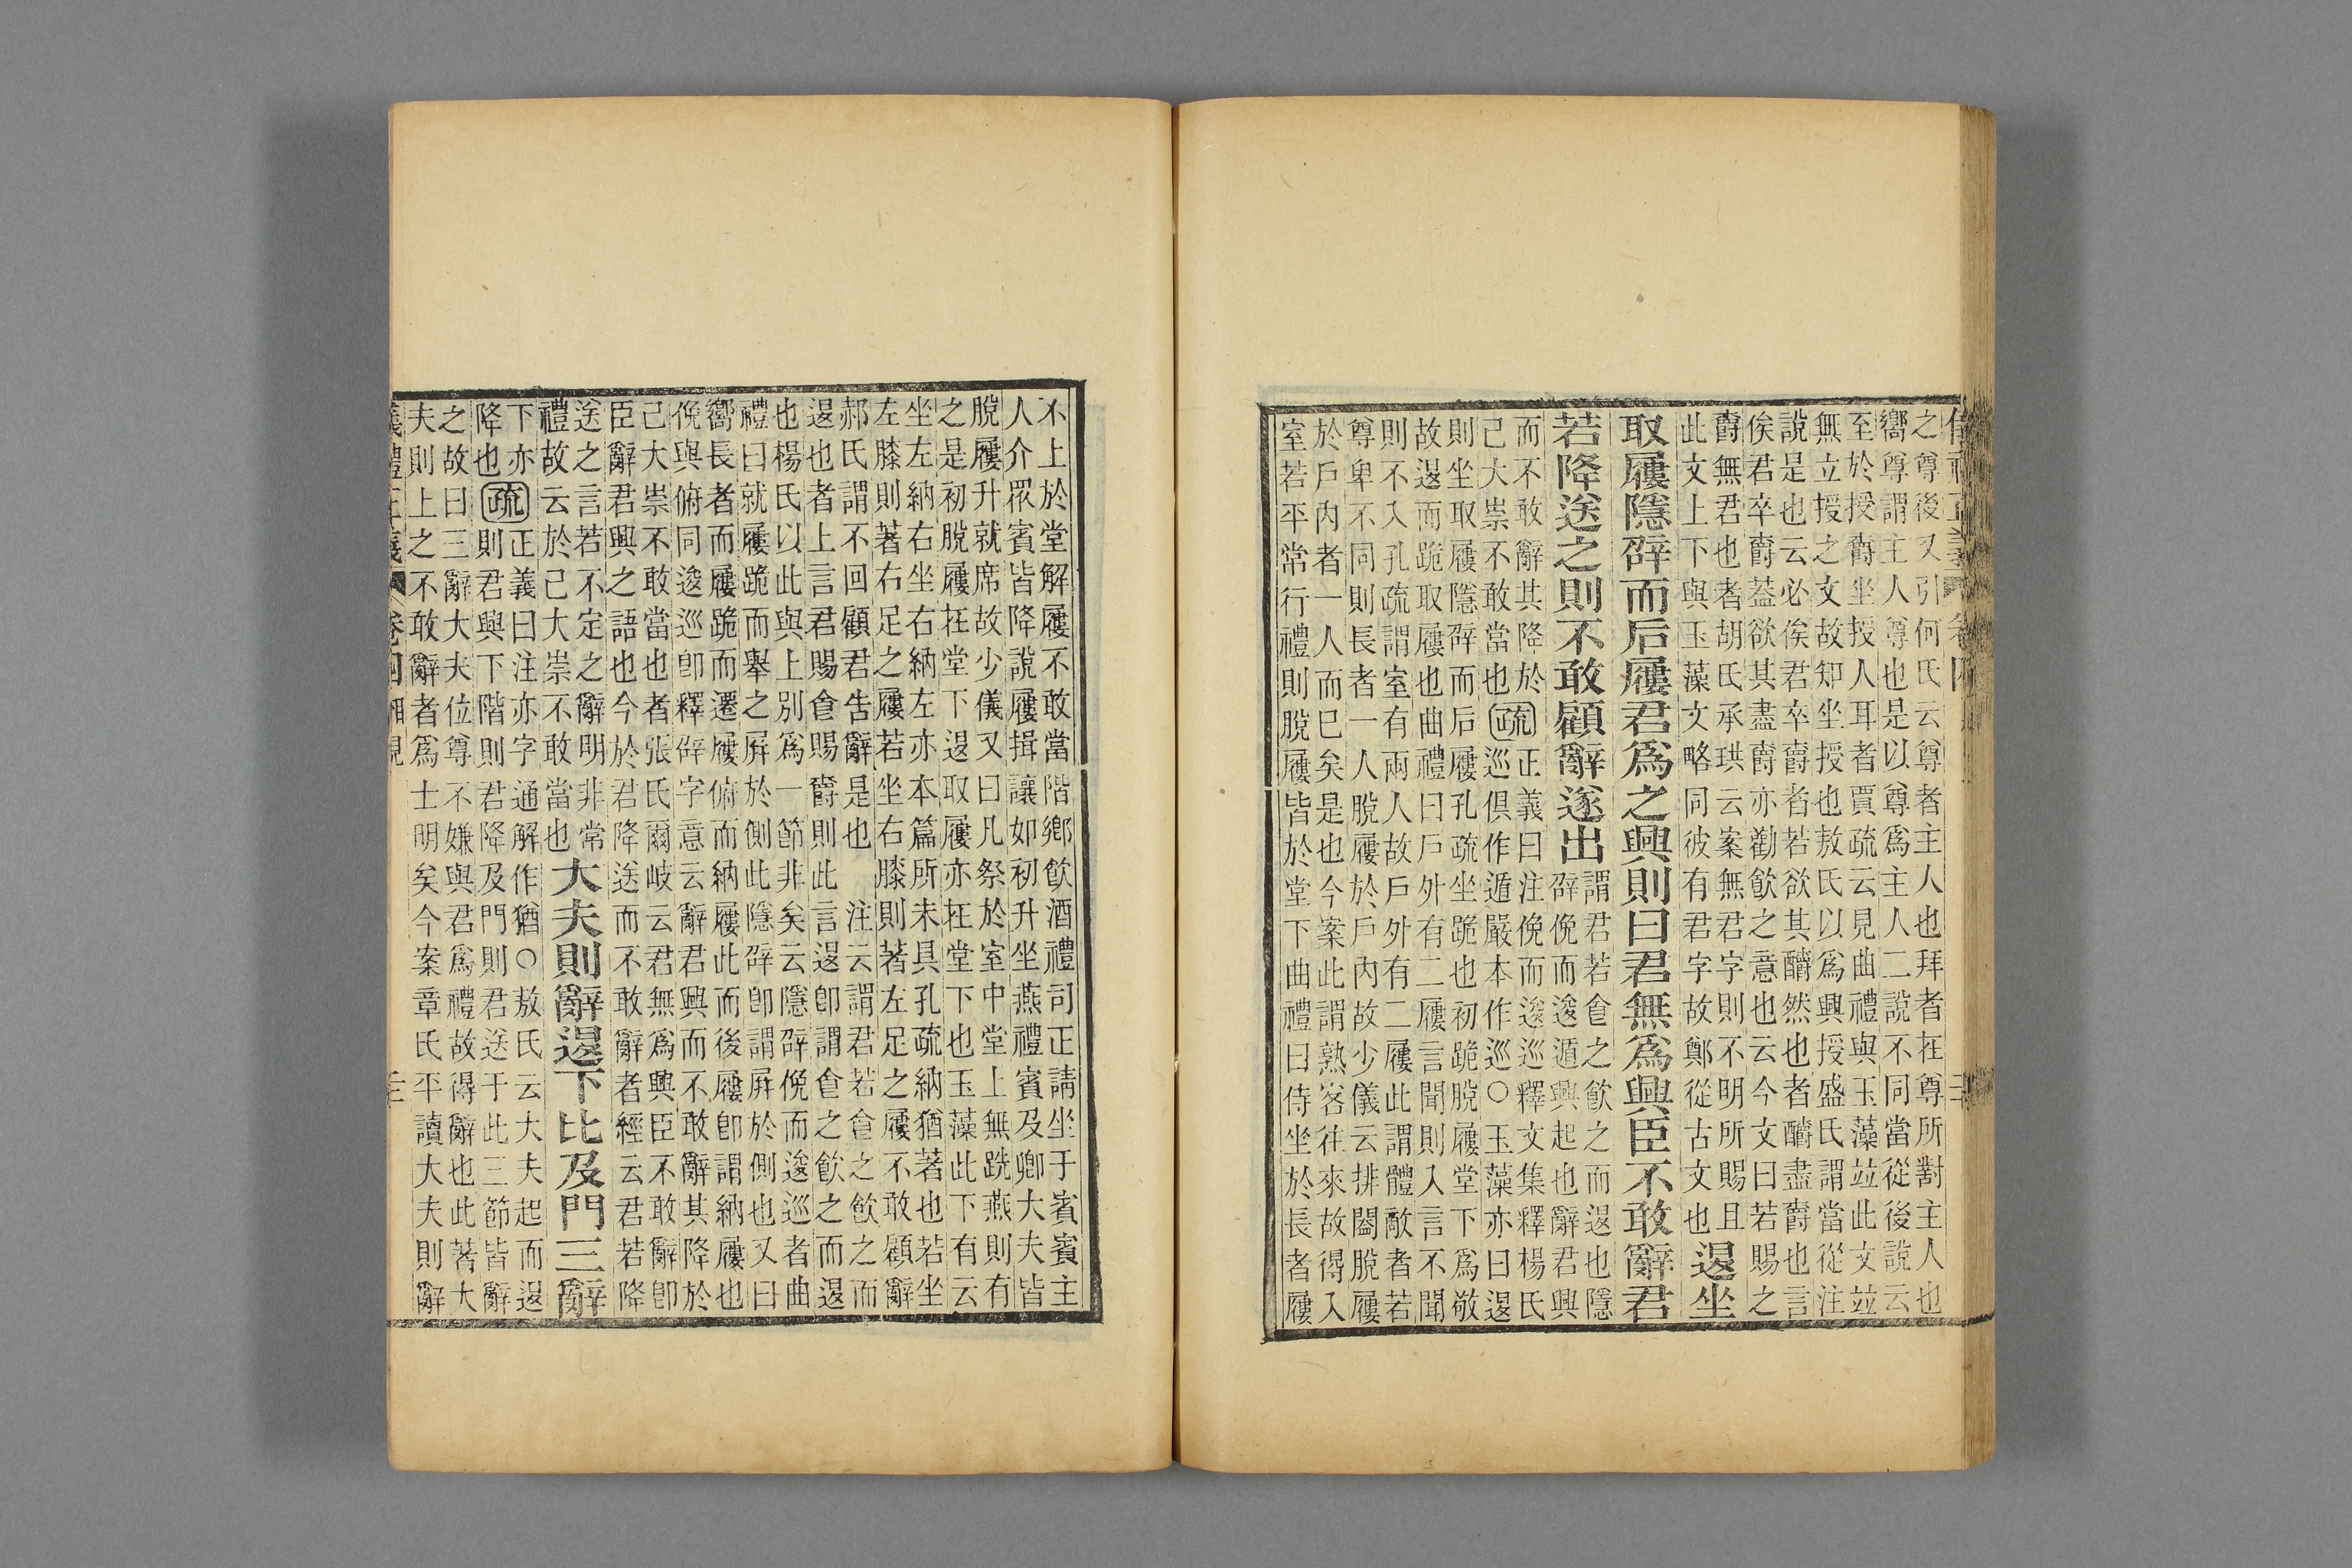 儀禮正義 卷四
之尊後又引何氏云尊者主人也拜者在尊所對主人也
嚮尊謂主人尊也是以尊爲主人二說不同當從後說云
至於授爵坐授人耳者賈疏云見曲禮與玉藻竝此文竝
無立授之文故知坐授也敖氏以爲興授盛氏謂當從注
說是也云必俟君卒爵者若欲其釂然也者釂盡爵也言
俟君卒爵葢欲其盡爵亦勸飮之意也云今文曰若賜之
爵無君也者胡氏承珙云案無君字則不明所賜且
此文上下與玉藻文略同彼有君字故鄭從古文也
退坐
取屨隱辟而后屨君爲之興則曰君無爲興臣不敢辭君
若降送之則不敢顧辭遂出
謂君若食之飮之而退也隱
辟俛而逡遁興起也辭君興
而不敢辭其降於
己大崇不敢當也
疏
正義曰注俛而逡巡釋文集釋楊氏
巡俱作遁嚴本作巡○玉藻亦曰退
則坐取屨隱辟而后屨孔疏坐跪也初跪脫屨堂下爲敬
故退而跪取屨也曲禮曰戶外有二屨言聞則入言不聞
則不入孔疏謂室有兩人故戶外有二屨此謂體敵者若
尊卑不同則長者一人脫屨於戶內故少儀云排闔脫屨
於戶內者一人而已矣是也今案此謂熟客往來故得入
室若平常行禮則脫屨皆於堂下曲禮曰侍坐於長者屨
不上於堂解屨不敢當階鄉飮酒禮司正請坐于賓賓主
人介眾賓皆降說屨揖讓如初升坐燕禮賓及卿大夫皆
脫屨升就席故少儀又曰凡祭於室中堂上無跣燕則有
之是初脫屨在堂下退取屨亦在堂下也玉藻此下有云
坐左納右坐右納左亦本篇所未具孔疏納猶著也若坐
左膝則著右足之屨若坐右膝則著左足之屨不敢顧辭
郝氏謂不回顧君告辭是也　注云謂君若食之飮之而
退也者上言君賜食賜爵則此言退卽謂食之飮之而退
也楊氏以此與上別爲一節非矣云隱辟俛而逡巡者曲
禮曰就屨跪而舉之屛於側此隱辟卽謂屛於側也又曰
嚮長者而屨跪而遷屨俯而納屨此而後屨卽謂納屨也
俛與俯同逡巡卽釋辟字意云辭君興而不敢辭其降於
己大崇不敢當也者張氏爾岐云君無爲興臣不敢辭卽
臣辭君興之語也今於君降送而不敢辭者經云君若降
送之言若不定之辭明非常
禮故云於己大崇不敢當也
大夫則辭退下比及門三辭
下亦
降也
疏
正義曰注亦字通解作猶○敖氏云大夫起而退
則君興下階則君降及門則君送于此三節皆辭
之故曰三辭大夫位尊不嫌與君爲禮故得辭也此著大
夫則上之不敢辭者爲士明矣今案章氏平讀大夫則辭
儀禮正義 卷四